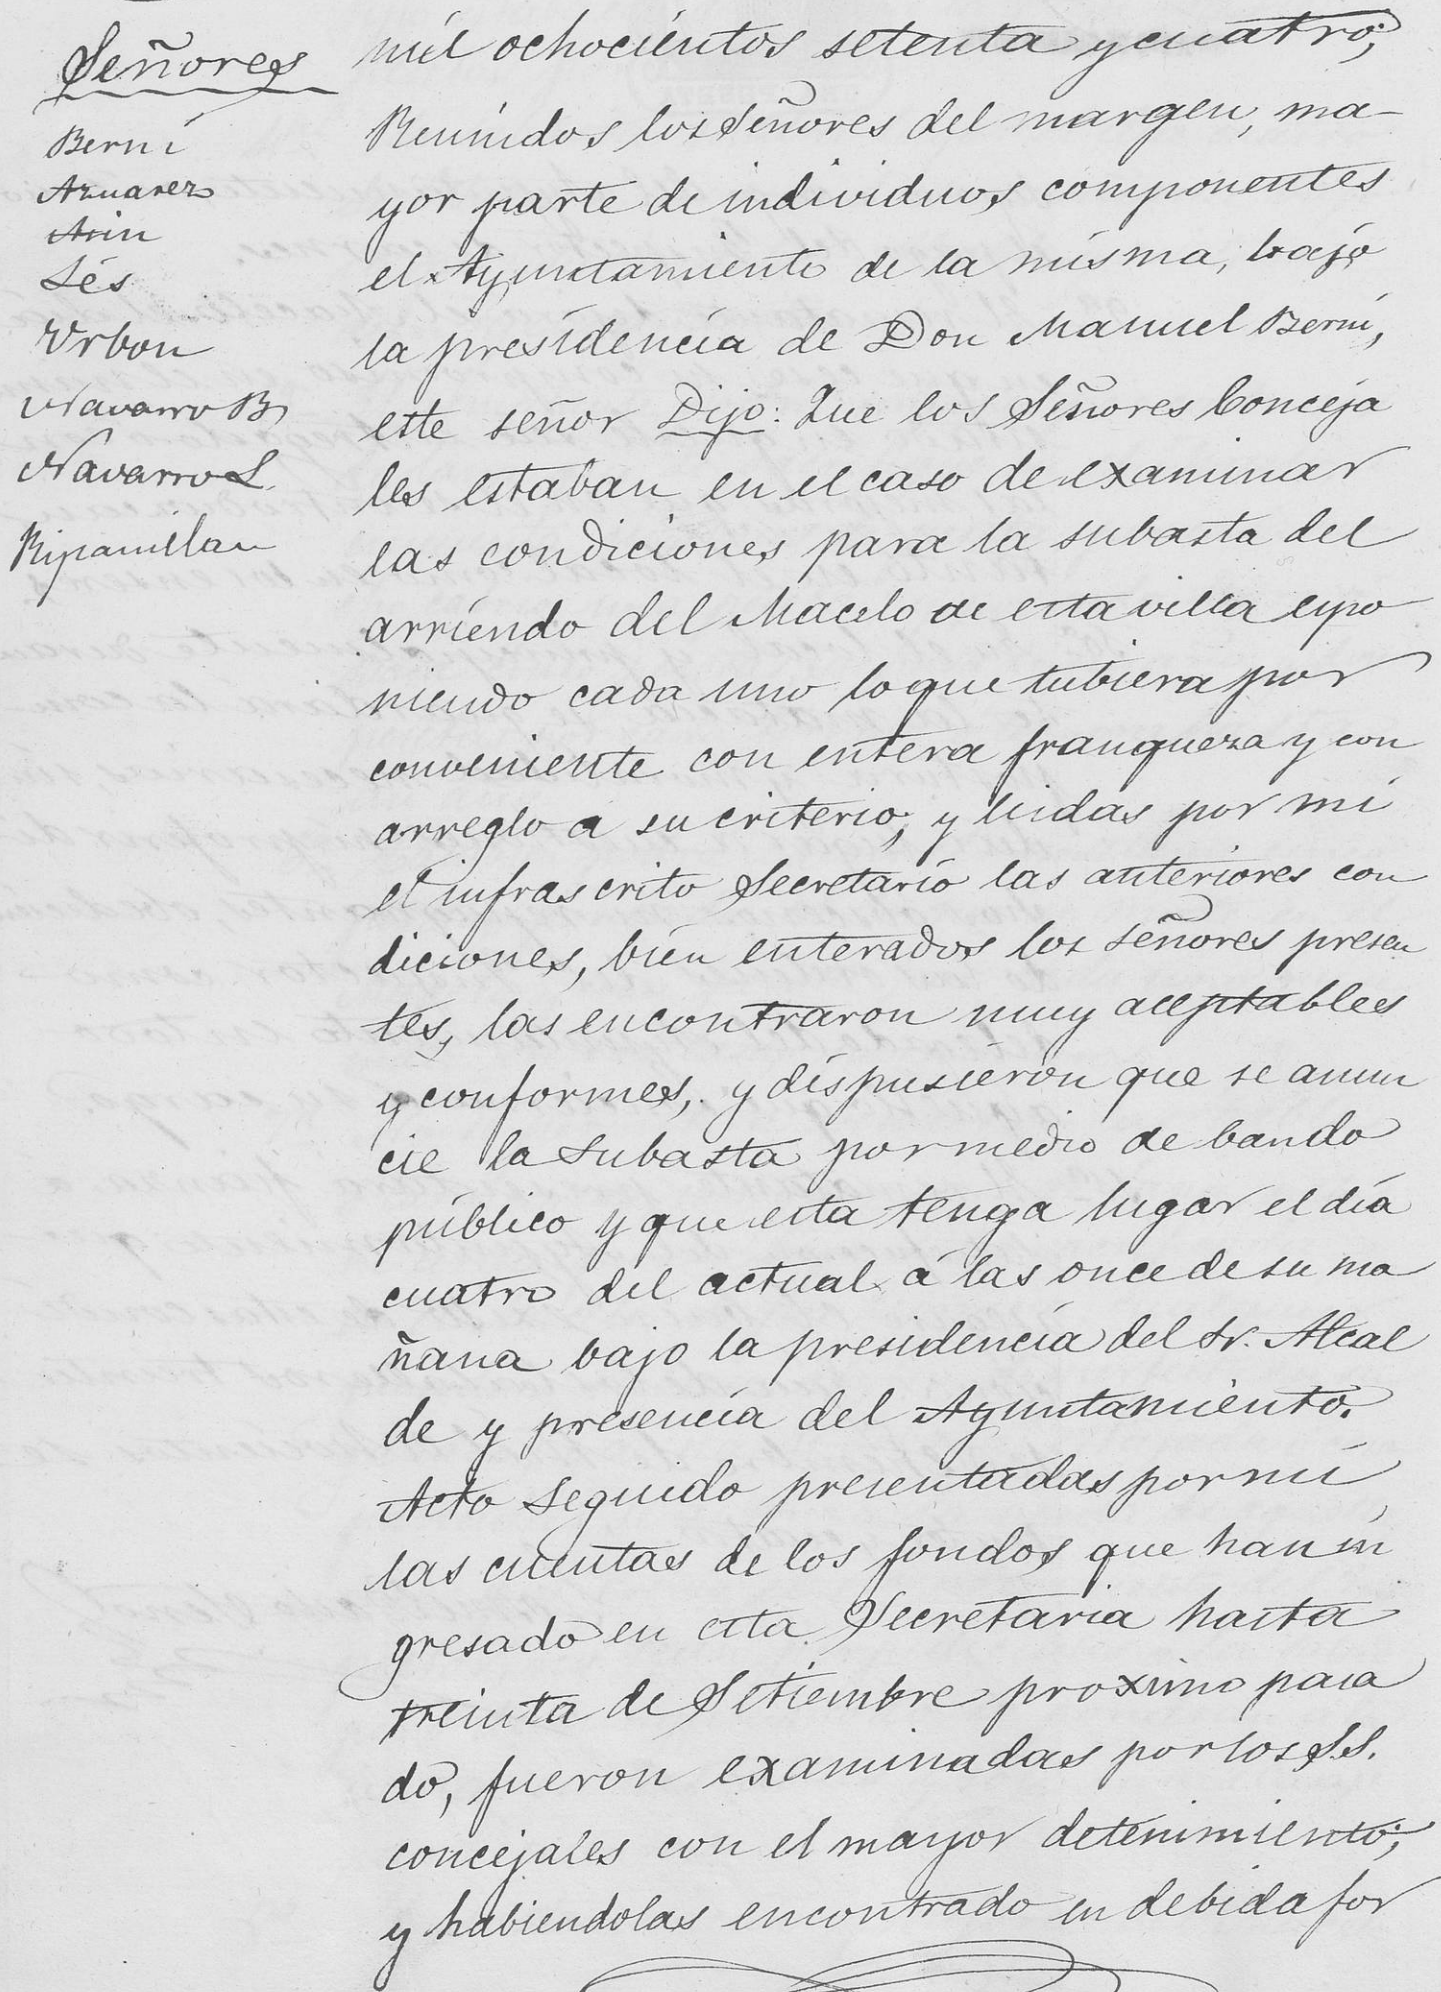 Señores
Berní
Aznarez
Arin
Lés
Urbon
Navarro B
Navarro L.
Ripamillan
mil ochocientos setenta y cuatro;
Reunidos los Señores del margen, ma-
yor parte de individuos componentes
el Ayuntamiento de la misma, bajo
la presidencia de Don Manuel Berni,
este señor Dijo: Que los Señores Conceja
les estaban en el caso de examinar
las condiciones para la subasta del
arriendo del Macelo de esta villa espo
niendo cada uno lo que tubiera por
conveniente con entera franqueza y con
arreglo a su criterio; y leidas por mi
el infrascrito Secretario las anteriores con
diciones, bien enterados los señores presen
tes, las encontraron muy aceptables
y conformes, y dispusieron que se anun
cie la Subasta por medio de bando
público y que esta tenga lugar el día
cuatro del actual á las once de su ma
ñana bajo la presidencia del Sr. Alcal
de y presencia del Ayuntamiento.
Acto seguido presentadas por mi
las cuentas de los fondos que han in
gresado en esta Secretaria hasta
treinta de Setiembre proximo pasa
do, fueron examinadas por los S.S.
concejales con el mayor detenimiento;
y habiendolas encontrado en debida for